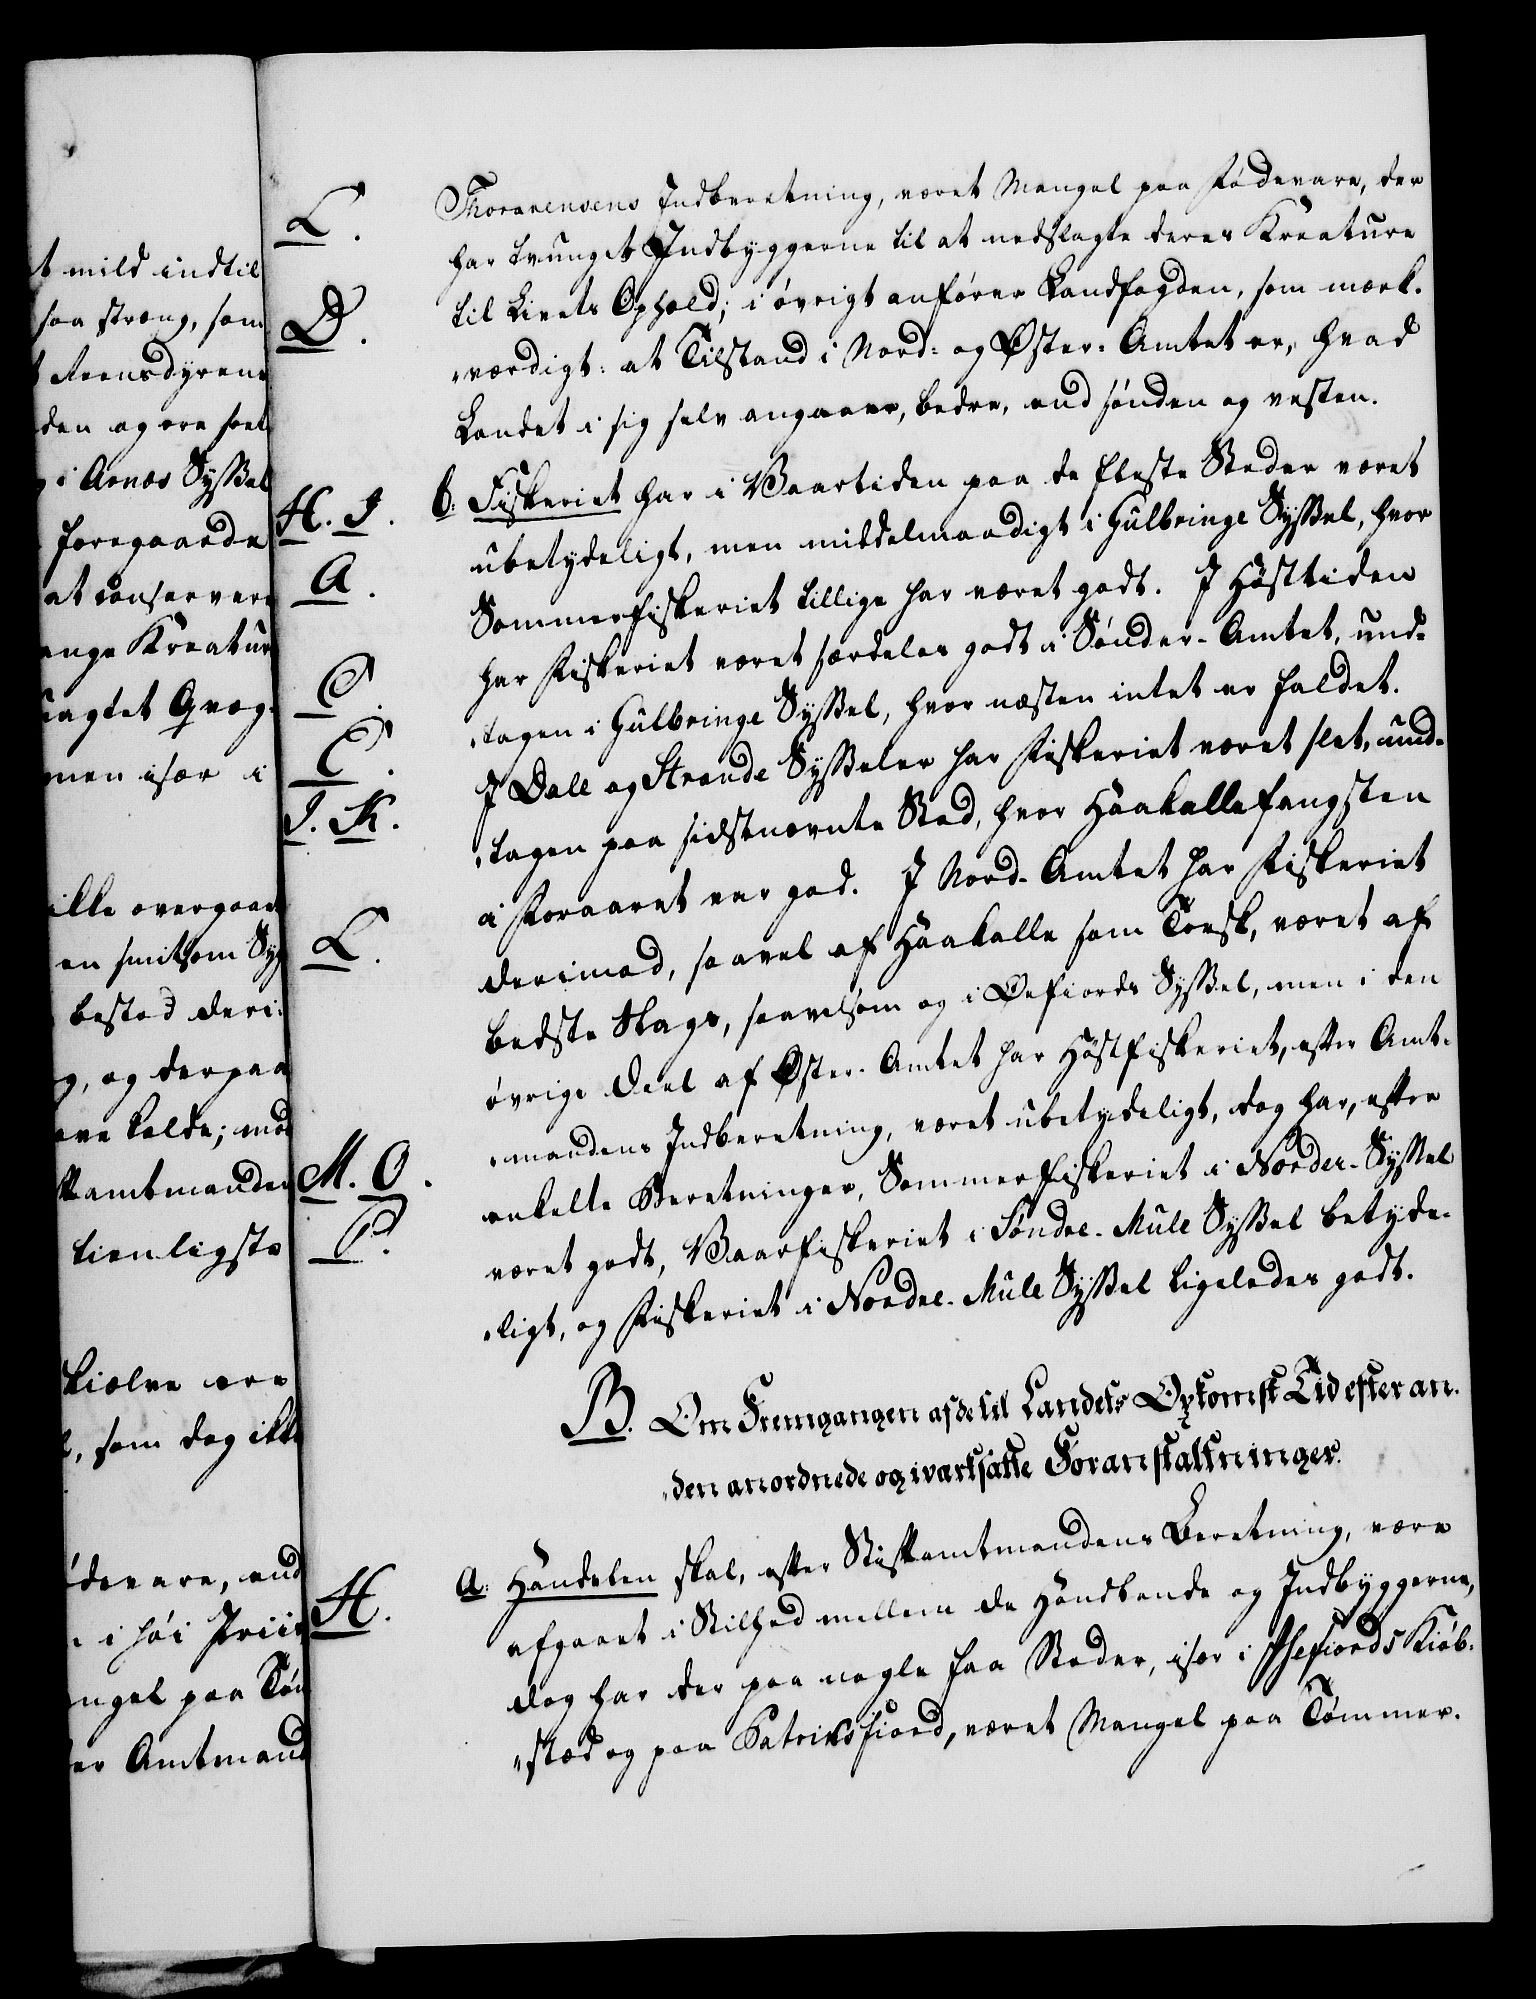 t mild indtil
saa stræng, som
t Reensdyrene
den og ere seet
i Arnæs Syssel
foregaaende
at conservere
ange Kreatur
uagtet Qvæg-
men især i
ikke overgaaet
en smitsom Syg
bestod deri:
g, og derpaa
ere kolde; mod
ftamtmanden
tienligste
skiælve ere
l, som dog ikke
ødevare, end
i høi Priis
ngel paa Tøm
er Amtmand
L.
D.
H. I.
A.
C.
E.
I. K.
L.
M. O.
P.
H.
Thorarensens Indberetning, været Mangel paa Fødevare, der
har tvunget Indbyggerne til at nedslagte deres Kreature
til Livets Ophold; i øvrigt anfører Landfogden, som mærk-
„værdigt: at Tilstand i Nord- og Øster-Amtet er, hvad
Landet i sig selv angaaer, bedre, end sønden og vesten.
b: Fiskeriet har i Vaartiden paa de fleste Steder været
ubetydeligt, men middelmaadigt i Gulbringe Syssel, hvor
Sommerfiskeriet tillige har været godt. I Høsttiden
har Fiskeriet været særdeles godt i Sønder-Amtet, und-
„tagen i Gulbringe Syssel, hvor næsten intet er faldet.
I Dale og Strande Sysseler har Fiskeriet været slet, und-
„tagen paa sidstnævnte Sted, hvor Haakallefangsten
i Foraaret var god. I Nord-Amtet har Fiskeriet
derimod, saavel af Haakalle som Torsk, været af
bedste Slags, saavelsom og i Øefiords Syssel, men i den
øvrige Deel af Øster-Amtet har Høstfiskeriet, efter Amt-
„mandens Indberetning, været ubetydeligt, dog har, efter
enkelte Beretninger, Sommerfiskeriet i Norder-Syssel
været godt, Vaarfiskeriet i Sønder-Mule Syssel betyde-
„ligt, og Fiskeriet i Norder-Mule Syssel ligeledes godt.
B. Om Fremgangen af de til Landets Opkomst Tid efter an-
„den anordnede og iværksatte Foranstaltninger.
a: Handelen skal, efter Stiftamtmandens Beretning, være
afgaaet i Stilhed mellem de Handlende og Indbyggerne,
dog har der paa nogle faa Steder, især i Isefiords Kiøb-
„stæd og paa Patriksfiord, været Mangel paa Tømmer.